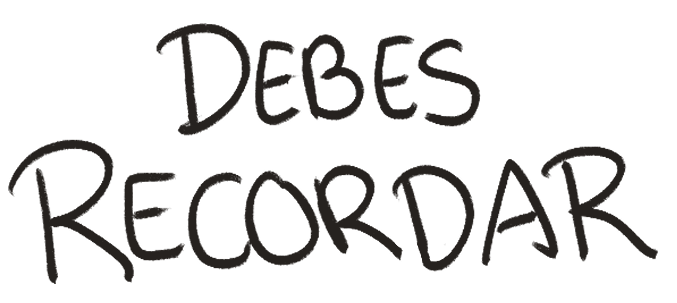 DEBES
RECORDAR